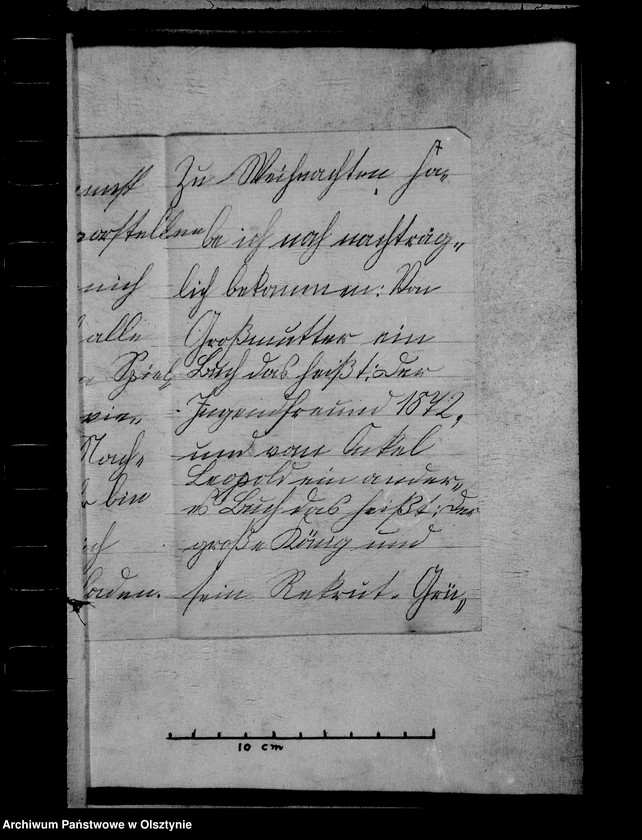 7
Zu Weihnachten ha-
be ich noch nachträg-
lich bekommen: Von
Großmutter ein
Buch das heißt: Der
Jugendfreund 1872,
und von Onkel
Leopold ein ander-
es Buch das heißt: Der
große König und
sein Rekrut. Grü-
vorstellen
mich
alle
Spiel-
Nach-
bin
laden.
10 cm
Archiwum Państwowe w Olsztynie